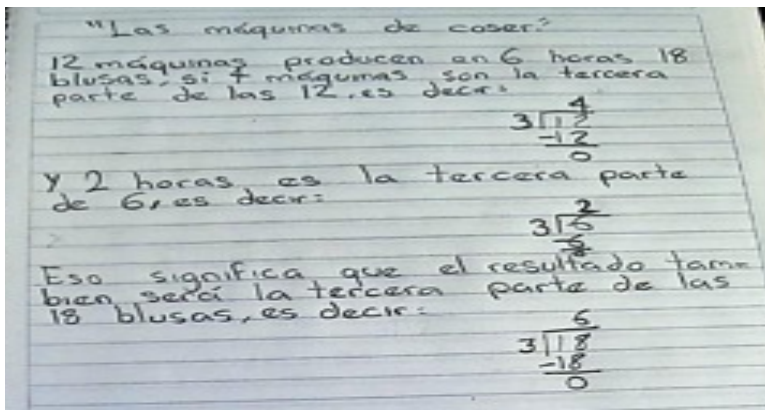 "Las máquinas de coser."
12 máquinas producen en 6 horas 18
blusas, si 4 máquinas son la tercera
parte de las 12, es decir:
4
3 12
-12
0
y 2 horas es la tercera parte
de 6, es decir:
2
3 6
6
Eso significa que el resultado tam-
bien será la tercera parte de las
18 blusas, es decir:
6
3 18
-18
0